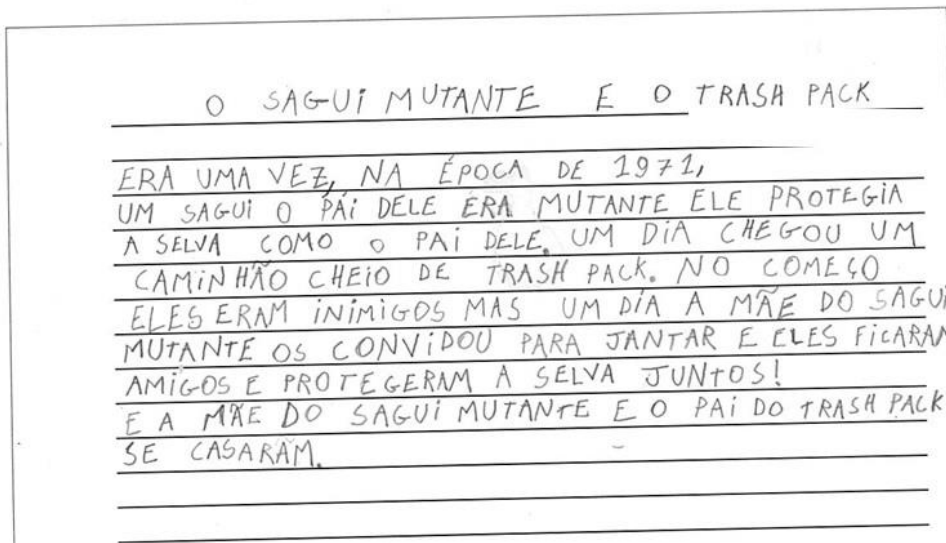 O SAGUI MUTANTE E O TRASH PACK
ERA UMA VEZ, NA ÉPOCA DE 1971,
UM SAGUI O PAI DELE ERA MUTANTE ELE PROTEGIA
A SELVA COMO O PAI DELE. UM DIA CHEGOU UM
CAMINHÃO CHEIO DE TRASH PACK. NO COMEÇO
ELES ERAM INIMIGOS MAS UM DIA A MÃE DO SAGUI
MUTANTE OS CONVIDOU PARA JANTAR E ELES FICARAM
AMIGOS E PROTEGERAM A SELVA JUNTOS!
E A MÃE DO SAGUI MUTANTE E O PAI DO TRASH PACK
SE CASARAM.